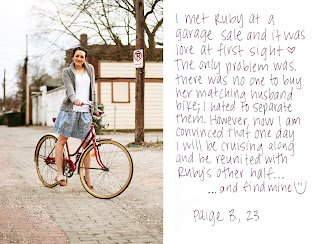 I met Ruby at a
garage sale and it was
love at first sight ♡
The only problem was,
there was no one to buy
her matching husband
bike; I hated to separate
them. However, now I am
convinced that one day
I will be cruising along
and be reunited with
Ruby's other half...
...and find mine☺
Paige B, 23